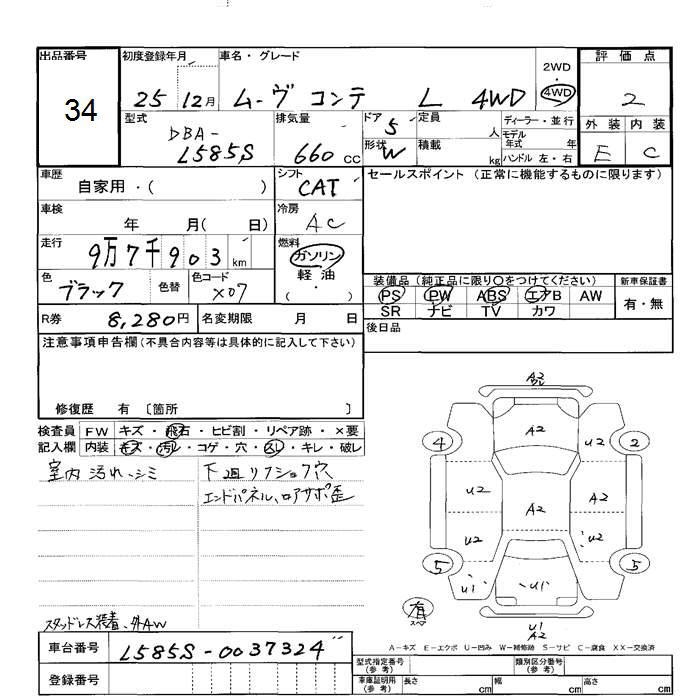 出品番号
34
初度登録年月
25 12月
車名・グレード
ムーヴ コンテ L 4WD
2WD
・
4WD
評価点
2
外装 内装
E C
型式
DBA-
L585S
排気量
660 cc
ドア 5
形状 W
定員 人
積載 kg
ディーラー・並行
モデル年式 年
ハンドル 左・右
車歴
自家用・( )
シフト
CAT
セールスポイント (正常に機能するものに限ります)
車検
年 月( 日)
冷房
AC
走行
9万7千903 km
燃料
ガソリン
軽油
( )
色
ブラック
色替
色コード
X07
装備品 (純正品に限り○をつけてください)
PS PW ABS エアB AW
SR ナビ TV カワ
新車保証書
有・無
R券 8,280円
名変期限 月 日
後日品
注意事項申告欄(不具合内容等は具体的に記入して下さい)
修復歴 有 〔箇所 〕
検査員 FW キズ・飛石・ヒビ割・リペア跡・×要
記入欄 内装 キズ・汚れ・コゲ・穴・スレ・キレ・破レ
室内汚れ、シミ
下廻リフショク穴
エンドパネル、ロアサポ歪
スタッドレス装着、外AW
A2
A2
4 U2 2
U2 A2 A2
U2 U2
5 5
U1 U1
有
スペア
U1
A2
A-キズ E-エクボ U-凹み W-補修跡 S-サビ C-腐食 XX-交換済
車台番号
L585S-0037324
登録番号
型式指定番号
(参考)
類別区分番号
(参考)
車庫証明用
(参考)
長さ cm
幅 cm
高さ cm